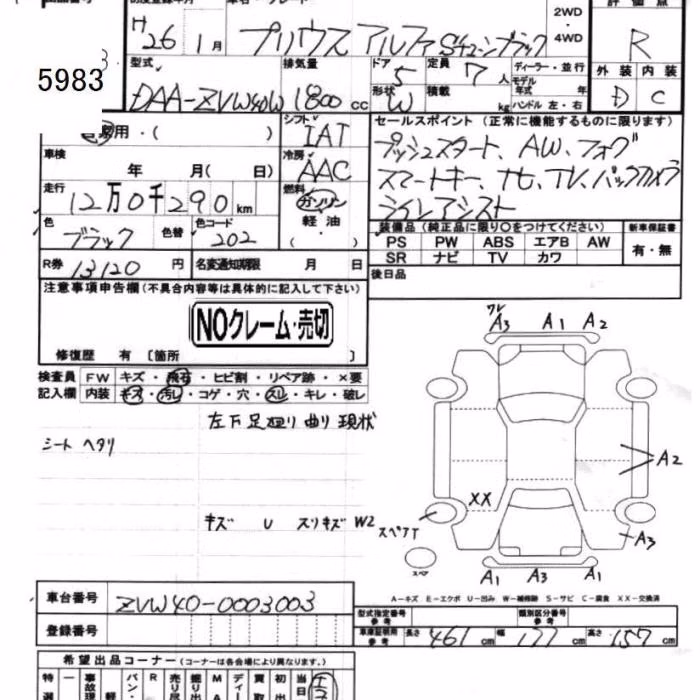 2WD
・
4WD
H 26 1月 プリウス アルファ Sチューンブラック
R
型式 排気量 ドア 定員 ディーラー・並行
5983
5 7人 モデル
年式 年
外装 内装
DAA-ZVW40W 1800cc 形状 W 積載 kg ハンドル 左・右
D C
家用・( )
シフト
IAT
セールスポイント (正常に機能するものに限ります)
車検
年 月( 日)
冷房
AAC
プッシュスタート、AW、フォグ
スマートキー、ナビ、TV、バックカメラ
走行
12万0千290km
燃料
ガソリン
軽油
( ・ )
色
ブラック
色替
色コード
202
装備品 (純正品に限り○をつけてください) 新車保証書
PS PW ABS エアB AW
有・無
SR ナビ TV カワ
R券 13120円 名変通知期限 月 日
後日品
注意事項申告欄 (不具合内容等は具体的に記入して下さい)
NOクレーム・売切
修復歴 有 〔箇所 〕
ワレ
A3 A1 A2
検査員 FW キズ・飛石・ヒビ割・リペア跡・×要
記入欄 内装 キズ・汚レ・コゲ・穴・スレ・キレ・破レ
左下足廻り曲り現状
シート ヘタリ
A2
XX
キズ U スリキズ W2
スペアT
A3
スペア
A1 A3 A1
A-キズ E-エクボ U-凹み W-補修跡 S-サビ C-腐食 XX-交換済
車台番号 ZVW40-0003003
型式指定番号
参考
類別区分番号
参考
登録番号
車庫証明用
参考
長さ 461cm 幅 177cm 高さ 157cm
希望出品コーナー (コーナーは各会場により異なります。)